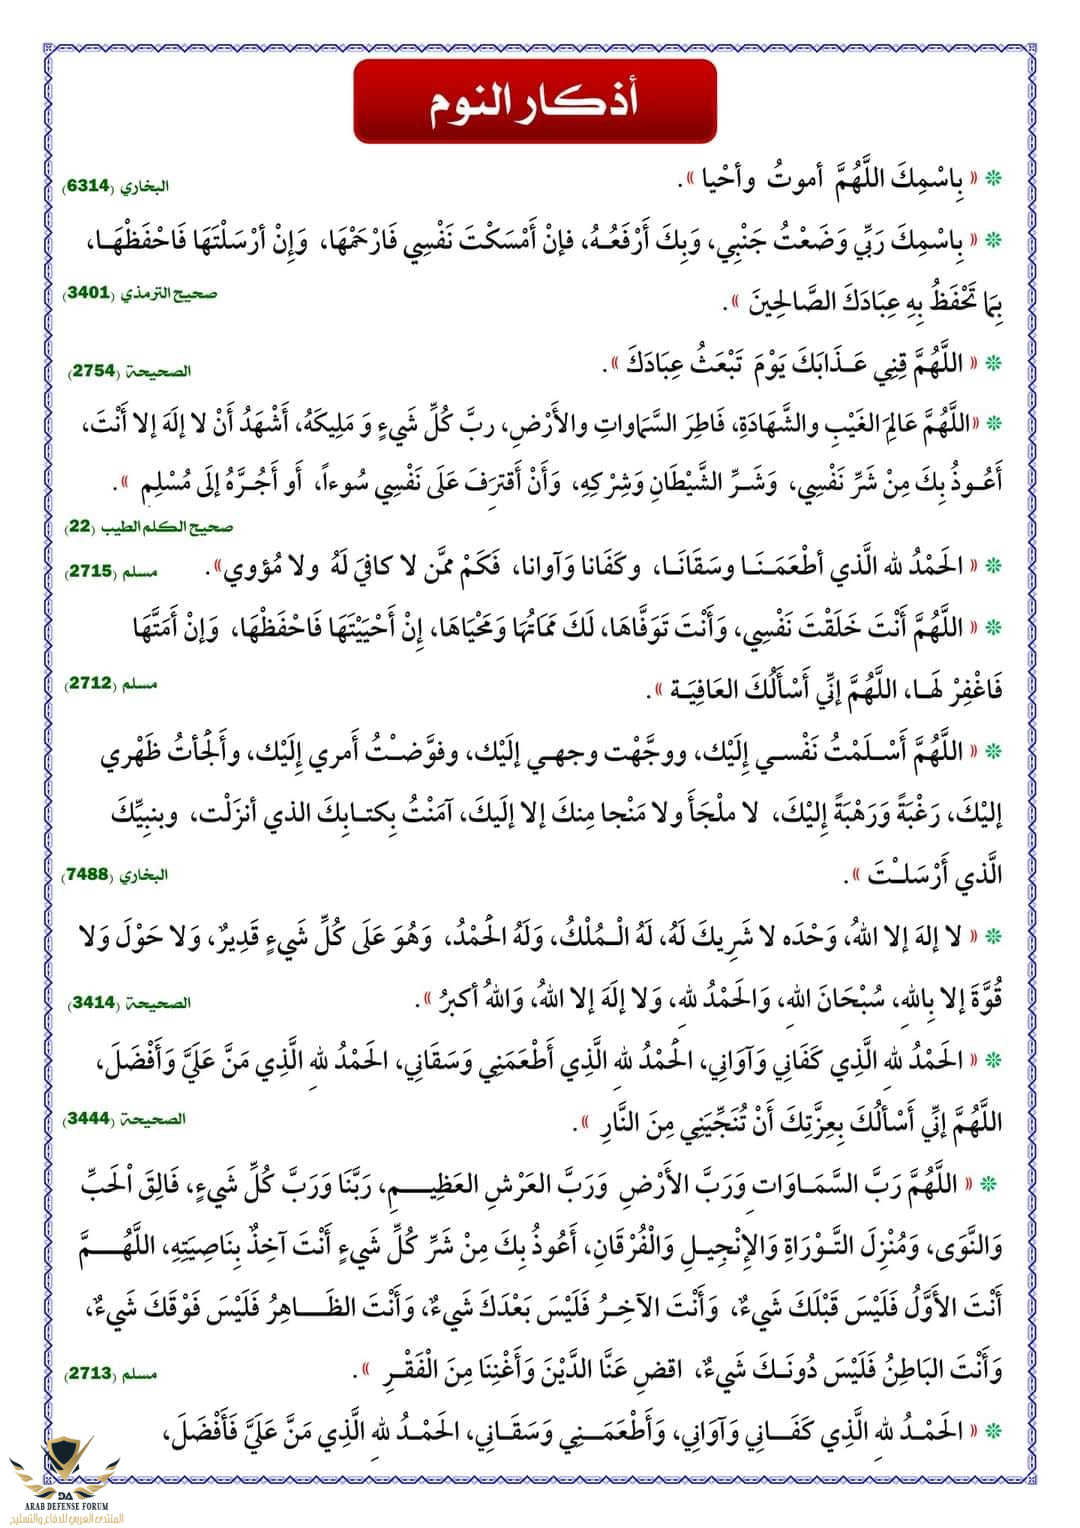 أذكار النوم
❊ « بِاسْمِكَ اللَّهُمَّ أموتُ وأحْيا ». البخاري (6314)
❊ « بِاسْمِكَ رَبِّي وَضَعْتُ جَنْبِي، وَبِكَ أَرْفَعُـهُ، فإنْ أَمْسَكْتَ نَفْسِي فَارْحَمْهَا، وَإِنْ أرْسَلْتَهَا فَاحْفَظْهَـا،
بِمَا تَحْفَظُ بِهِ عِبَادَكَ الصَّالِحِينَ ». صحيح الترمذي (3401)
❊ « اللَّهُمَّ قِنِي عَـذَابَكَ يَوْمَ تَبْعَثُ عِبَادَكَ ». الصحيحة (2754)
❊ «اللَّهُمَّ عَالِمَ الغَيْبِ والشَّهَادَةِ، فَاطِرَ السَّمَاواتِ والأَرْضِ، ربَّ كُلِّ شَيءٍ وَ مَلِيكَهُ، أَشْهَدُ أَنْ لا إلَهَ إلا أَنْتَ،
أَعُـوذُ بِكَ مِنْ شَرِّ نَفْسِي، وَشَـرِّ الشَّيْطَانِ وَشِرْكِهِ، وَأَنْ أَقتَرِفَ عَلَى نَفْسِي سُوءاً، أَو أَجُـرَّهُ إلَى مُسْلِمٍ ».
صحيح الكلم الطيب (22)
❊ « الحَمْدُ لله الَّذي أطْعَمَـنَـا وسَقَانَـا، وكَفَانا وَآوانا، فَكَمْ ممَّن لا كافيَ لَهُ ولا مُؤوي». مسلم (2715)
❊ « اللَّهُمَّ أَنْتَ خَلَقْتَ نَفْسِي، وَأَنْتَ تَوَفَّاهَا، لَكَ مَمَاتُهَا وَمَحْيَاهَا، إنْ أَحْيَيْتَهَا فَاحْفَظْهَا، وَإنْ أَمَتَّهَا
فَاغْفِرْ لَهَـا، اللَّهُمَّ إنِّي أَسْأَلُكَ العَافِيَـة ». مسلم (2712)
❊ « اللَّهُمَّ أَسْـلَمْتُ نَفْسـي إِلَيْك، ووجَّهْت وجهـي إلَيْك، وفوَّضـْتُ أَمري إِلَيْك، وأَلْجأتُ ظَهْري
إليْكَ، رَغْبَةً وَرَهْبَةً إِليْكَ، لا ملْجَأَ ولا مَنْجا مِنكَ إلا إلَيكَ، آمَنْتُ بِكتـابِكَ الذي أنزَلْت، وبنبِيِّكَ
الَّذي أَرْسَلـْتَ ». البخاري (7488)
❊ « لا إلهَ إلا اللهُ، وَحْدَه لا شَرِيكَ لَهُ، لَهُ الْـمُلْكُ، وَلَهُ الْحَمْدُ، وَهُوَ عَلَى كُلِّ شَيءٍ قَدِيرٌ، وَلا حَوْلَ وَلا
قُوَّةَ إلا بِاللهِ، سُبْحَانَ اللهِ، وَالحَمْدُ للهِ، وَلا إلَهَ إلا اللهُ، وَاللهُ أكبرُ ». الصحيحة (3414)
❊ « الحَمْدُ للهِ الَّذِي كَفَانِي وَآوَانِي، الْحَمْدُ للهِ الَّذِي أَطْعَمَنِي وَسَقَانِي، الحَمْدُ للهِ الَّذِي مَنَّ عَلَيَّ وَأَفْضَلَ،
اللَّهُمَّ إنِّي أَسْأَلُكَ بِعِزَّتِكَ أَنْ تُنَجِّيَنِي مِنَ النَّارِ ». الصحيحة (3444)
❊ « اللَّهُمَّ رَبَّ السَّمَـاوَاتِ وَرَبَّ الأَرْضِ وَرَبَّ العَرْشِ العَظِيـــمِ، رَبَّنَا وَرَبَّ كُلِّ شَيءٍ، فَالِقَ الْحَبِّ
وَالنَّوَى، وَمُنْزِلَ التَّـوْرَاةِ وَالإنْجِيـلِ وَالْفُرْقَانِ، أَعُوذُ بِكَ مِنْ شَرِّ كُلِّ شَيءٍ أَنْتَ آخِذٌ بِنَاصِيَتِهِ، اللَّهُـــمَّ
أَنْتَ الأَوَّلُ فَلَيْسَ قَبْلَكَ شَيءٌ، وَأَنْتَ الآخِـرُ فَلَيْسَ بَعْدَكَ شَيءٌ، وَأَنْتَ الظَـــاهِرُ فَلَيْسَ فَوْقَكَ شَيءٌ،
وَأَنْتَ البَاطِنُ فَلَيْسَ دُونَـكَ شَيءٌ، اقضِ عَنَّا الدَّيْنَ وَأَغْنِنَا مِنَ الْفَقْـرِ ». مسلم (2713)
❊ « الحَمْـدُ للهِ الَّذِي كَفَـــانِي وَآوَانِي، وَأَطْعَمَـــنِي وَسَقَـانِي، الحَمْـدُ للهِ الَّذِي مَنَّ عَلَيَّ فَأَفْضَلَ،
DA
ARAB DEFENSE FORUM
المنتدى العربي للدفاع والتسليح